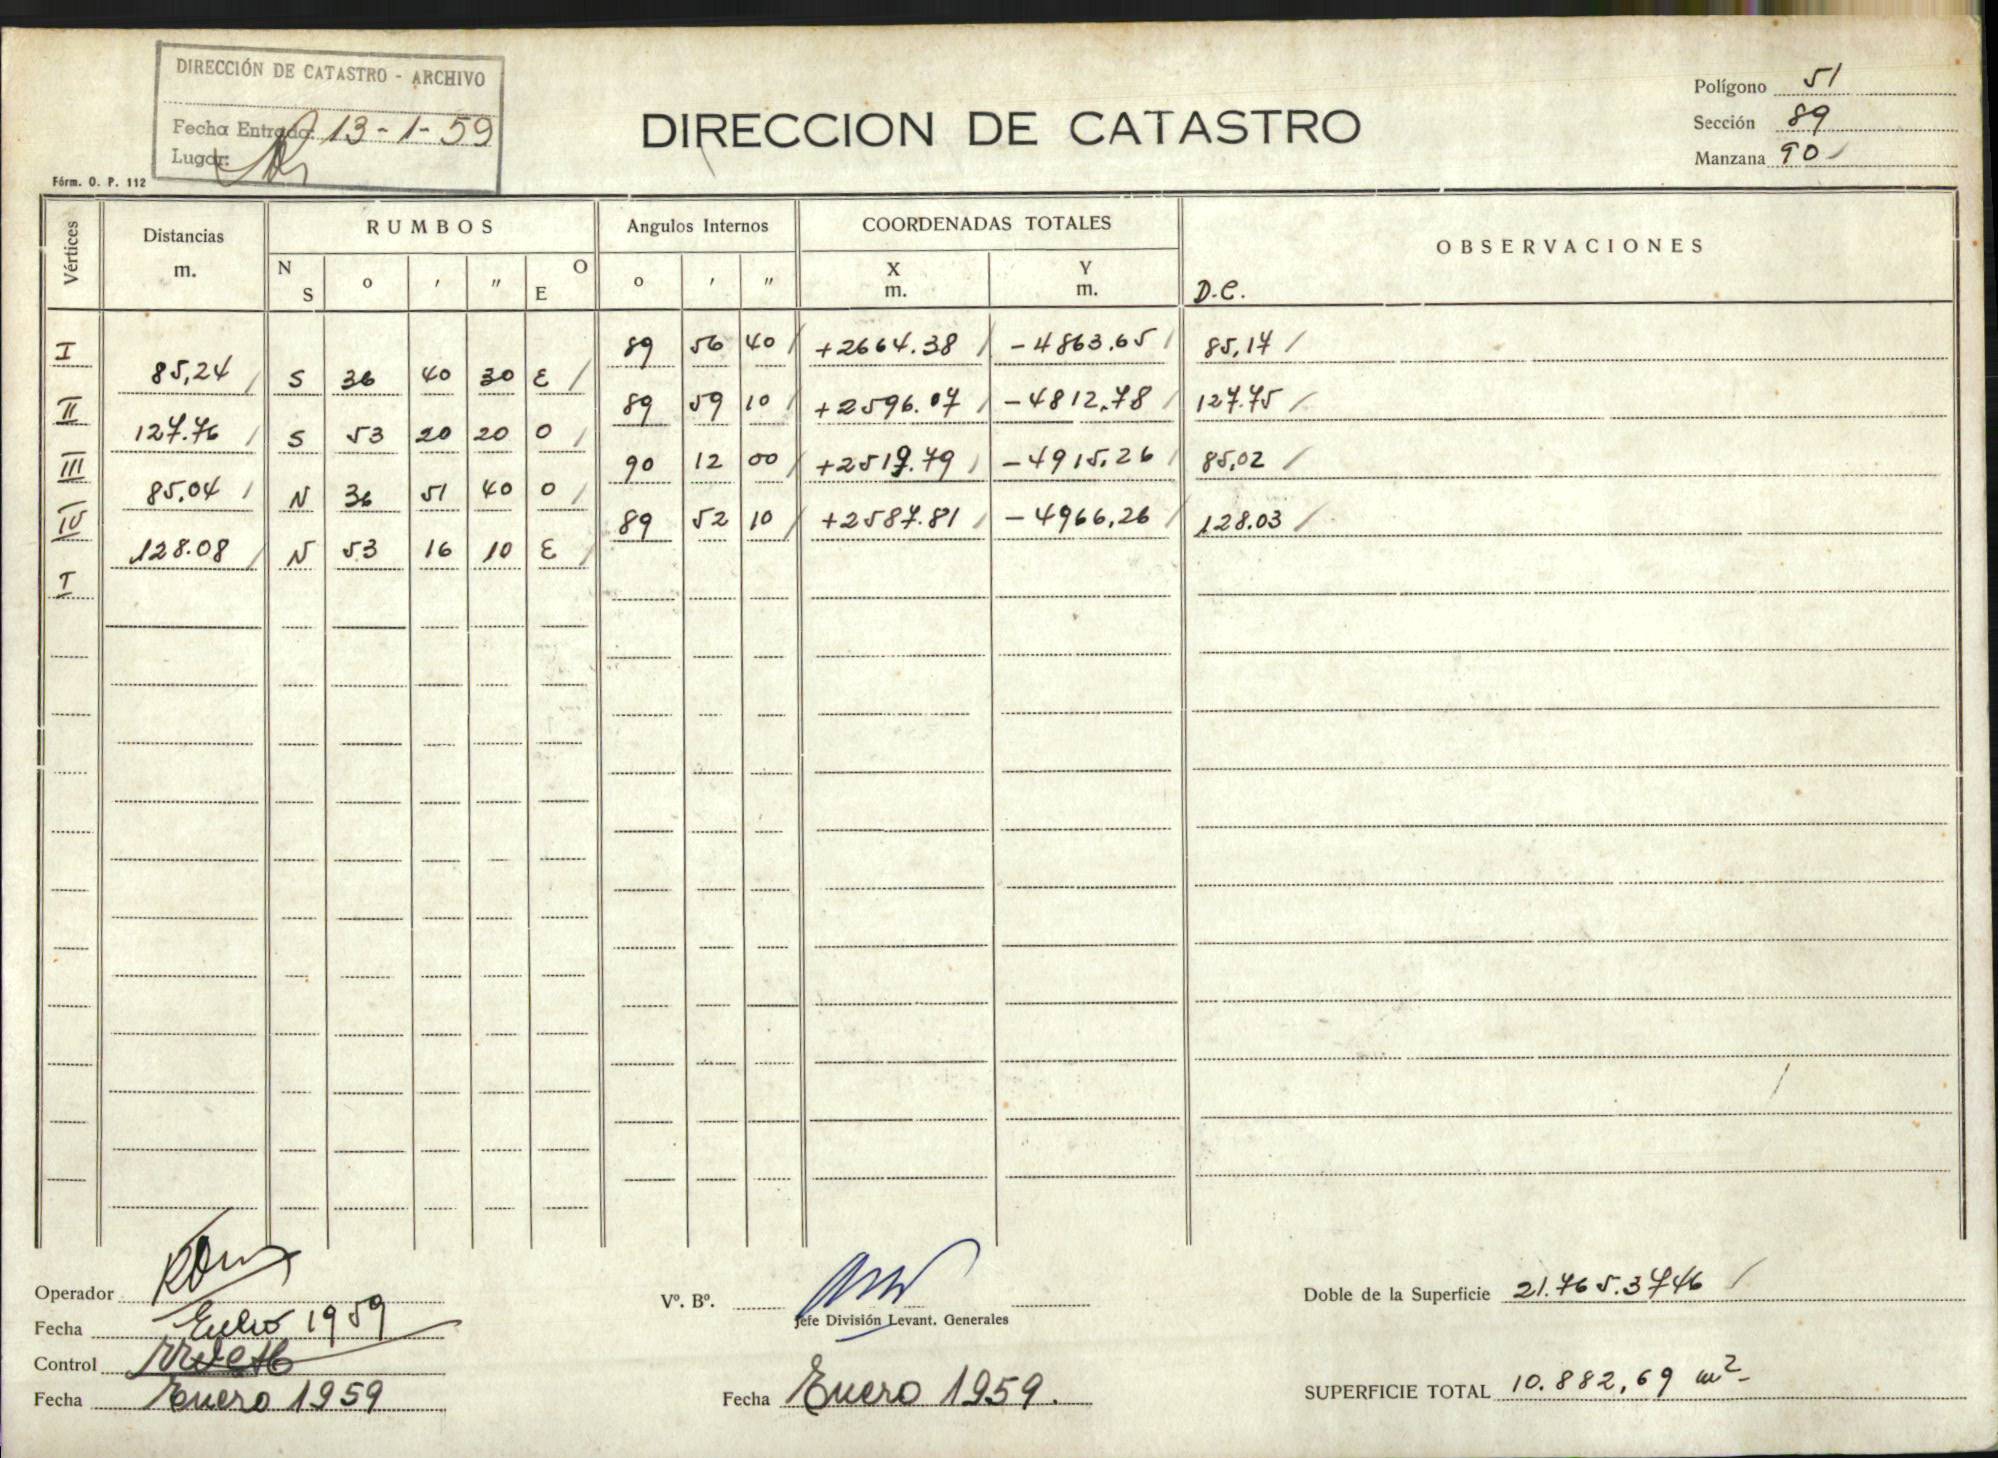 DIRECCIÓN DE CATASTRO - ARCHIVO
Fecha Entrada: 13-1-59
Lugar:
Fórm. O. P. 112
DIRECCION DE CATASTRO
Polígono 51
Sección 89
Manzana 90
Vértices Distancias m. RUMBOS Angulos Internos COORDENADAS TOTALES OBSERVACIONES
N S o ' " O E o ' " X m. Y m. D.C.
I 89 56 40 +2664.38 -4863.65 85,17
85,24 S 36 40 30 E
II 89 59 10 +2596.07 -4812,78 127.75
127.76 S 53 20 20 O
III 90 12 00 +2519.79 -4915,26 85,02
85,04 N 36 51 40 O
IV 89 52 10 +2587.81 -4966,26 128.03
128.08 N 53 16 10 E
I
Operador
Fecha Enero 1959
Control
Fecha Enero 1959
Vº. Bº.
Jefe División Levant. Generales
Fecha Enero 1959.
Doble de la Superficie 21.765.3746
SUPERFICIE TOTAL 10.882,69 m²